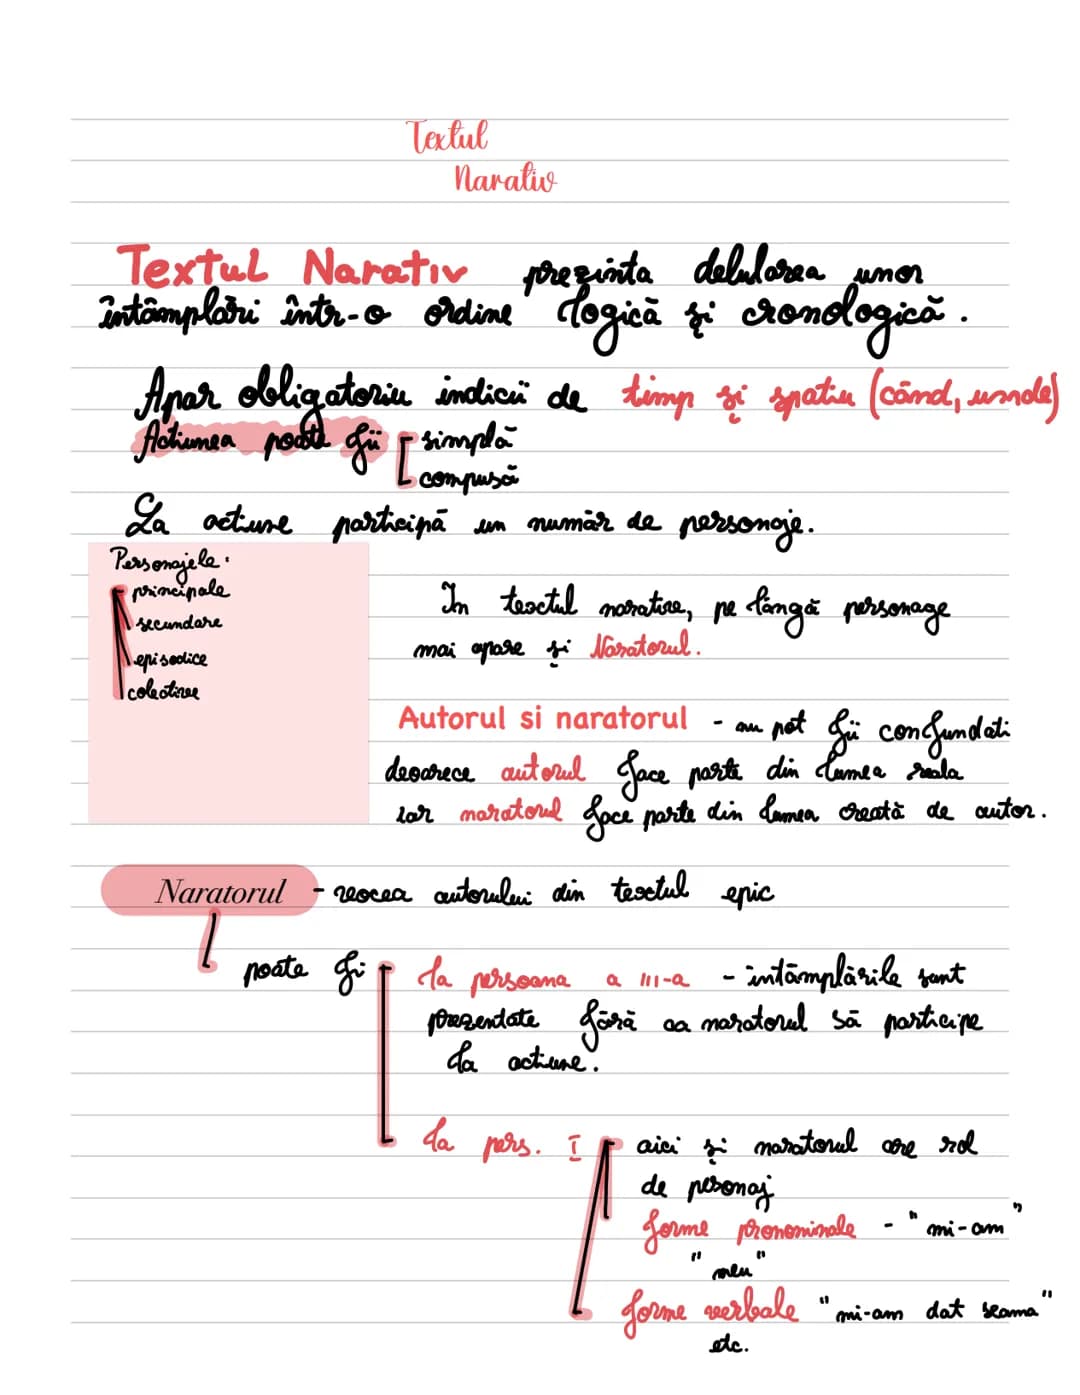 Textul
Narativ
Textul Narativ prezinta delularea unor
întâmplări într-o ordine logică și cronologică.
Apar obligatoriu indicii de timp și spatiu (când, unde)
Actiunea poate fii simplă
compusă
La actiune participă un număr de personaje.
Personajele:
principale
secundare
episodice
colective
In textul narative, pe lângă personage
mai apare și Naratorul.
Autorul si naratorul - nu pot fii confundati
deoarece autorul face parte din lumea reala
iar naratorul face parte din lumea creată de autor.
Naratorul - vocea autorului din textul epic
poate fi la persoana a III-a - întâmplările sunt
prezentate fără ca naratorul să participe
la actiune.
la pers. I aici și naratorul are rol
de pesonaj
forme pronominale - "mi-am"
"meu"
forme verbale "mi-am dat seama"
etc.